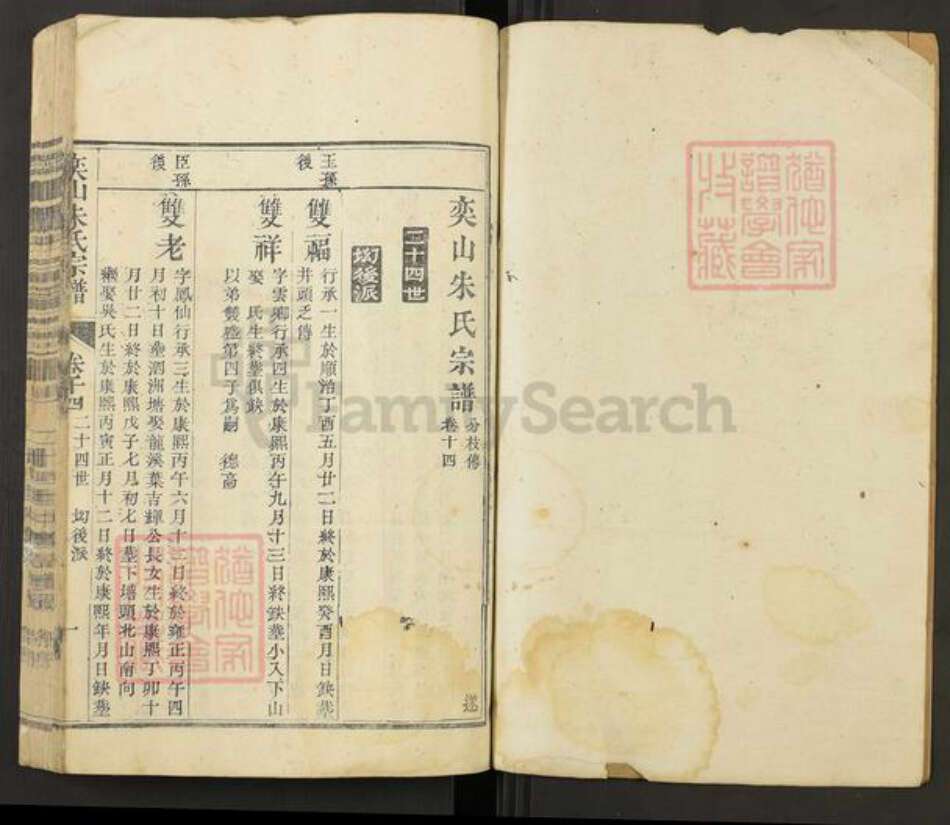 奕山朱氏宗譜
分枝傳
卷十四
二十四世
坳後派
王孫
後
雙福
行承一生於順治丁酉五月廿二日終於康熙癸酉月日鈌塟
井頭乏傳
雙祥
字雲卿行承四生於康熙丙午九月十三日終鈌塟小入下山
娶 氏生終塟俱鈌
以弟雙 第四子爲嗣 德高
臣孫
後
雙老
字鳳仙行承三生於康熙丙午六月十二日終於雍正丙午四
月初十日塟泗洲塘娶龍溪葉吉輝公長女生於康熙丁卯十
月廿二日終於康熙戊子七月初七日墓下 頭北山南向
繼娶吳氏生於康熙丙寅正月十二日終於康熙年月日鈌塟
奕山朱氏宗譜
卷十四
二十四世 坳後派
一
FamilySearch
猶他家
譜學會
收藏
猶他家
譜學會